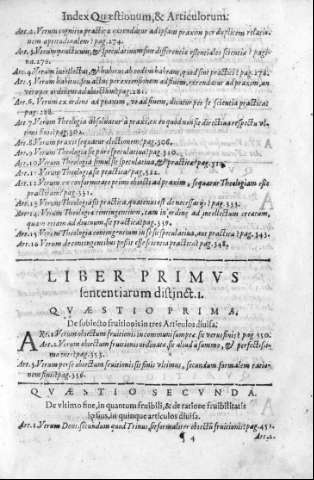 Index Quæstionum, & Articulorum.
Art.2. Vtrum cognitio practica extendatur ad ipsam praxim per duplicem relatio-
nem aptitudinalem? pag.274.
Art.3. Vtrum practicum, & speculatiuum sint differentiæ essentiales scientiæ? pagi-
na.276.
Art.4. Vtrum intellectus, & habitus ab eodem habeant, quòd sint practici? pag.278.
Art.5. Vtrum habitus, siue actus per extensionem ad finem, extendatur ad praxim, an
verò per ordinem ad obiectum? pag.281.
Art.6. Vtrum ex ordine ad praxim, vt ad finem, dicatur per se scientia practica?
pag.288.
Art.7. Vtrum Theologia dicatur à praxi, ex eo quòd
timi finis? pag.302.
Art.8. Vtrum praxis sequatur electionem? pag.306.
Art.9. Vtrum Theologia sit purè speculatiua? pag.310.
Art.10. Vtrum Theologia simul sit speculatiua, & practica?
Art.11. Vtrum Theologia sit practica? pag.322.
Art.12. Vtrum ex conformitate primi obiecti ad praxim, sequatur Theologiam esse
practicam? pag.331.
Art.13. Vtrum Theologia sit practica, quatenus est de necessarijs? pag.333.
Art.14. Vtrum Theologia contingentium, tam in ordine ad intellectum creatum,
quàm etiam ad diuinum, sit practica? pag.339.
Art.15. Vtrum Theologia contingentium in se sit speculatiua, aut practica? pag.343.
Art.16. Vtrum de contingentibus possit esse scientia practica? pag.348.
LIBER PRIMVS
sententiarum distinct.1.
QVÆSTIO PRIMA,
De subiecto fruitionis in tres Articulos diuisa.
ARt.1. Vtrum obiectum fruitionis in communi sumptæ, sit verus finis? pag.350.
Art.2. Vtrum obiectum fruitionis ordinatæ sit aliud à summo, & perfectissi-
mo vero? pag.353.
Art.3. Vtrum per se obiectum fruitionis sit finis vltimus, secundum formalem ratio-
nem finis? pag.356.
QVÆSTIO SECVNDA.
De vltimo fine, in quantum fruibili, & de ratione fruibilitatis
ipsius, in quinque articulos diuisa.
Art.1. Vtrum Deus, secundum quod Trinus, sit formaliter obiectum fruitionis? pag.451.
¶ 4
Art.2.